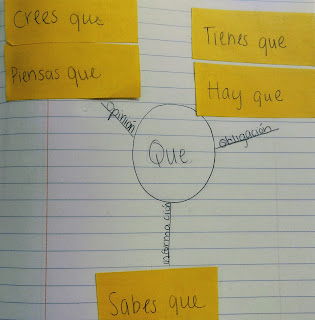 Crees que
Piensas que
Tienes que
Hay que
Opinión
Obligación
Que
Información
Sabes que